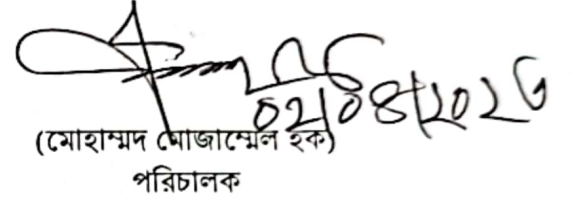 ০২/০৪/২০২৩
(মোহাম্মদ মোজাম্মেল হক)
পরিচালক